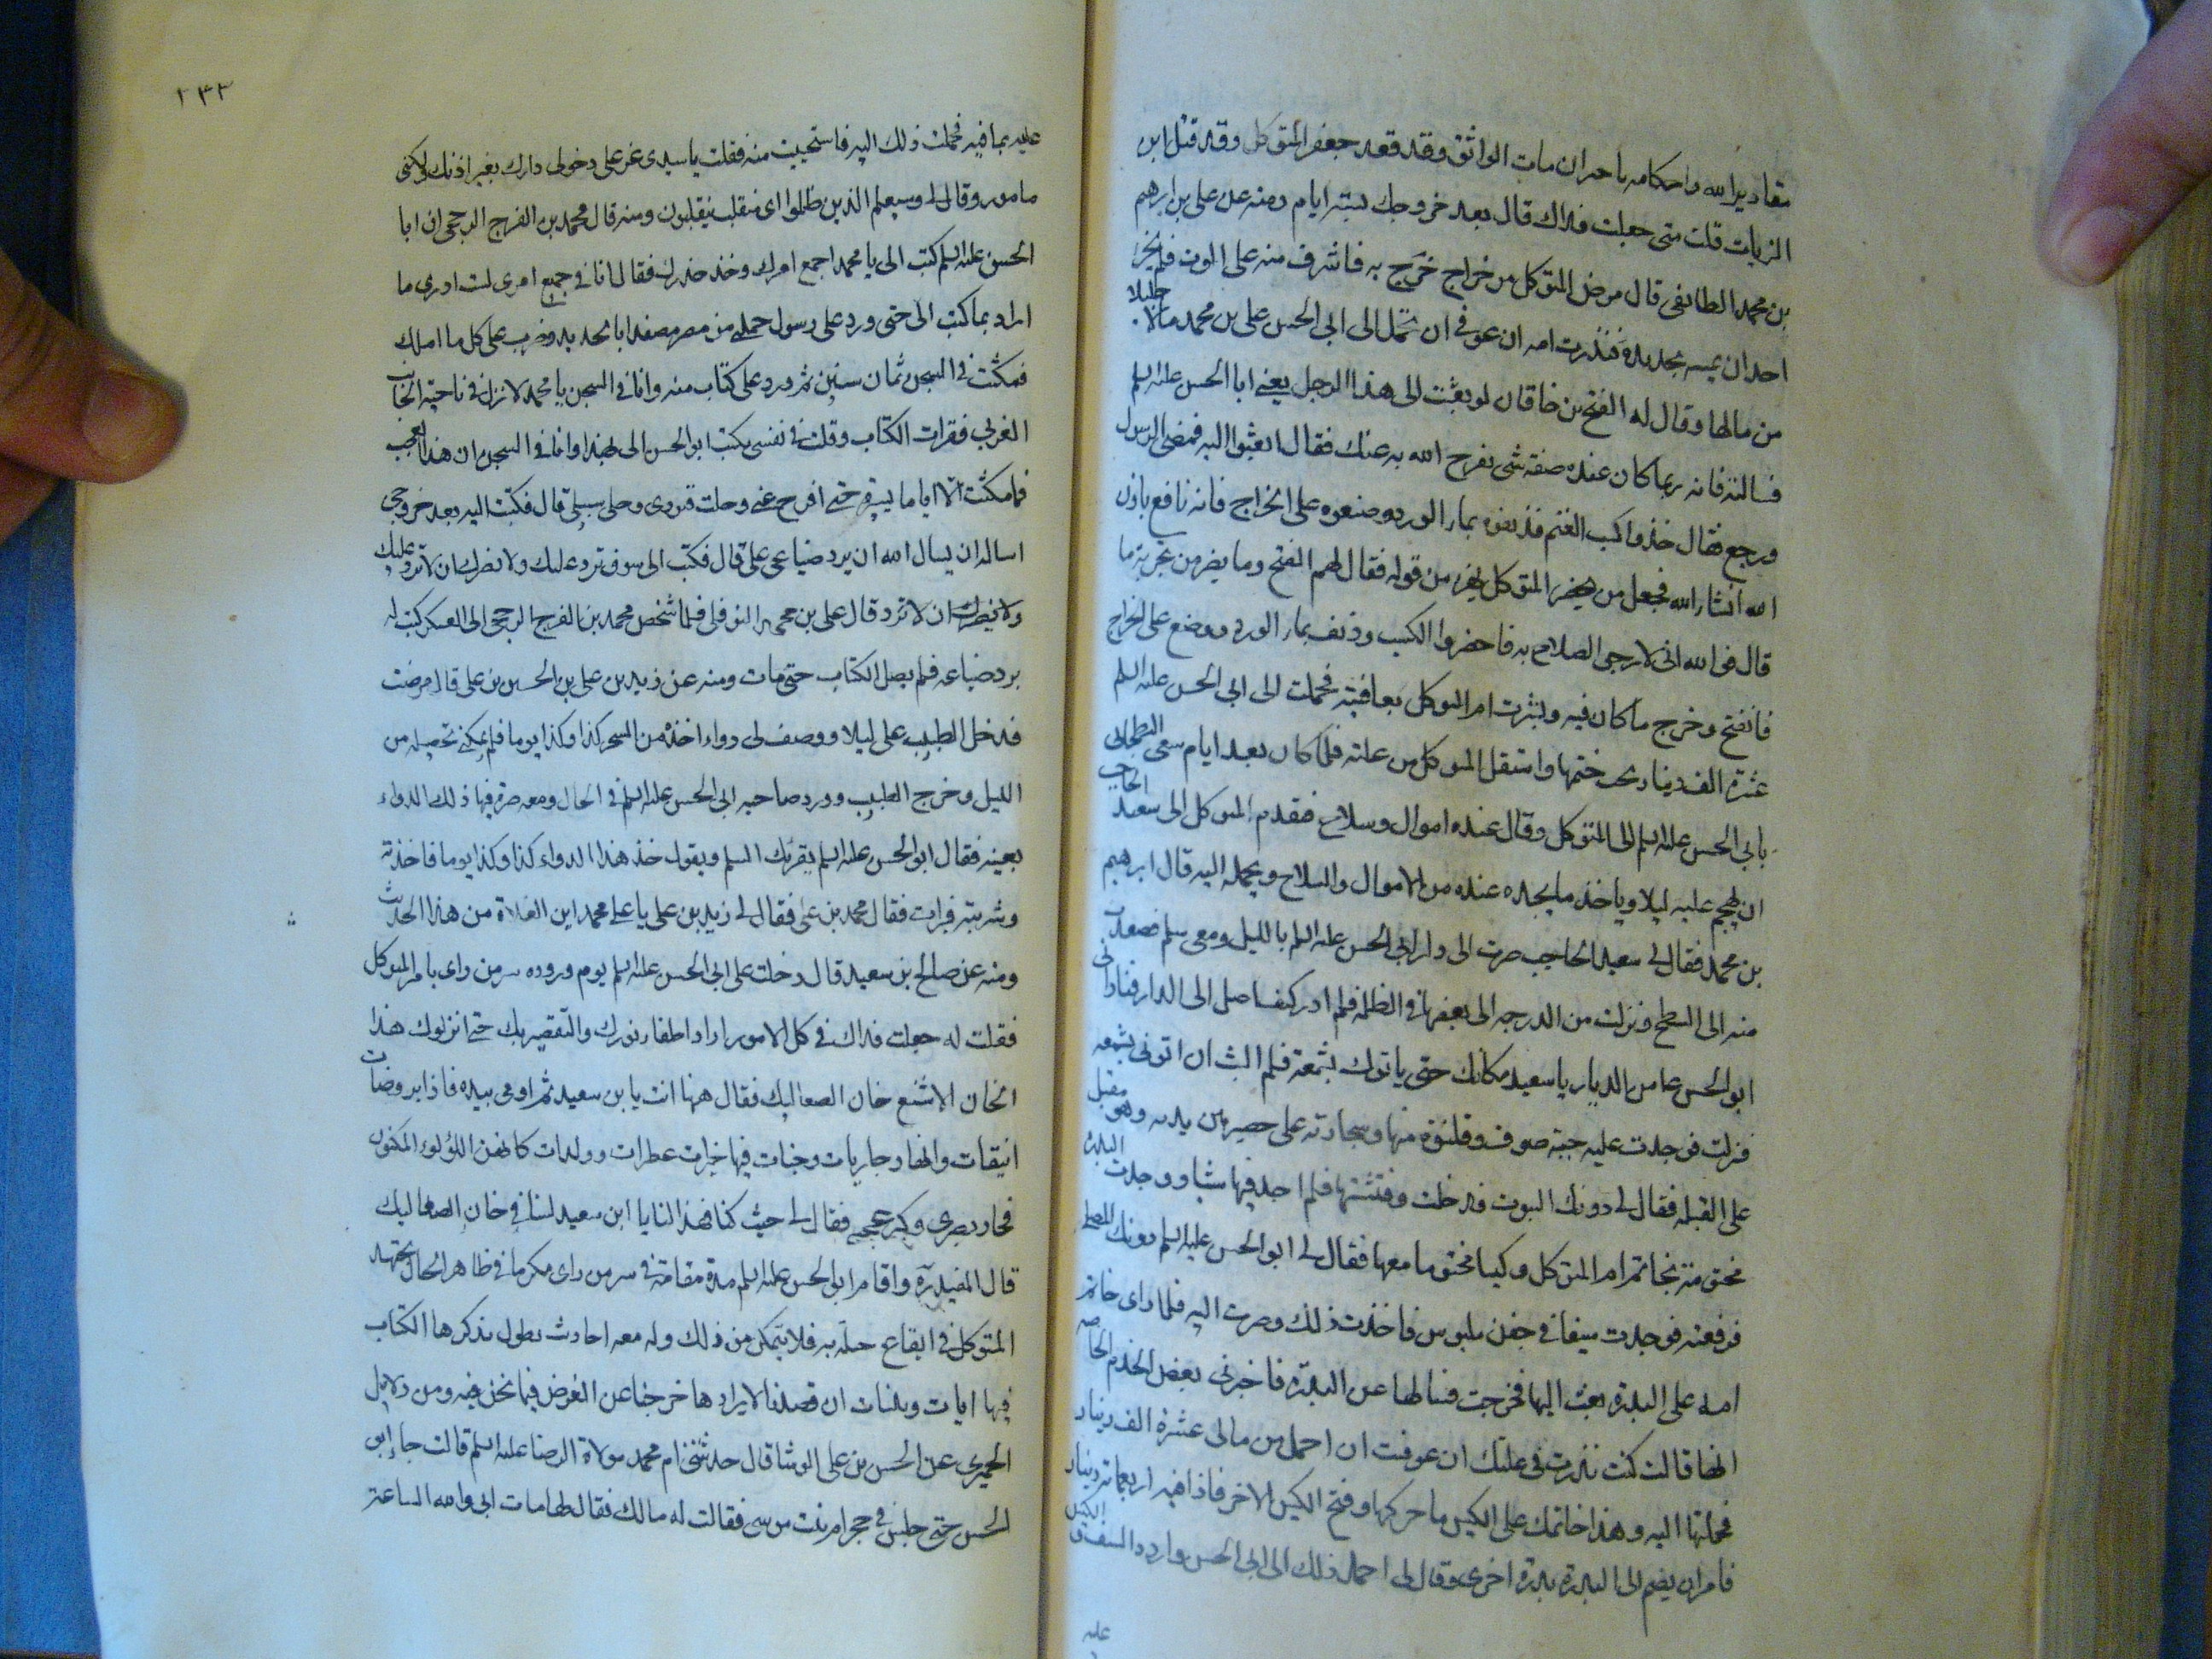 مقادير الله واحكامه يا خيران مات الواثق وقد قعد جعفر المتوكل وقد قتل ابن
الزيات قلت متى جعلت فداك قال بعد خروجك بستة ايام ومنه عن علي بن ابرهيم
بن محمد الطائفي قال مرض المتوكل من خراج خرج به فاشرف منه على الموت فلم يجر
احد ان يمسه بحديدة فنذرت امه ان عوفي ان تحمل الى ابي الحسن علي بن محمد مالا جليلا
من مالها وقال له الفتح بن خاقان لو بعثت الى هذا الرجل يعني ابا الحسن عليه السلم
فسالته فانه ربما كان عنده صفة شي يفرج الله به عنك فقال ابعثوا اليه فمضى الرسول
ورجع فقال خذوا كسب الغنم فذيفوه بماء الورد وضعوه على الخراج فانه نافع باذن
الله انشاء الله فجعل من يحضر المتوكل يهزء من قوله فقال لهم الفتح وما يضر من تجربة ما
قال فوالله اني لارجو الصلاح به فاحضروا الكسب وذيف بماء الورد ووضع على الخراج
فانفتح وخرج ما كان فيه وبشرت ام المتوكل بعافيته فحملت الى ابي الحسن عليه السلم
عشرة الف دينار تحت ختمها واستقل المتوكل من علته فلما كان بعد ايام سعى البطحائي
بابي الحسن عليه السلم الى المتوكل وقال عنده اموال وسلاح فتقدم المتوكل الى سعيد الحاجب
ان يهجم عليه ليلا وياخذ ما يجده عنده من الاموال والسلاح ويحمله اليه قال ابرهيم
بن محمد فقال لي سعيد الحاجب صرت الى دار ابي الحسن عليه السلم بالليل ومعي سلم فصعدت
منه الى السطح ونزلت من الدرجة الى بعضها في الظلمة فلم ادر كيف اصل الى الدار فناداني
ابو الحسن عا من الديار يا سعيد مكانك حتى ياتوك بشمعة فلم البث ان اتوني بشمعه
فنزلت فوجدت عليه جبة صوف وقلنسوة منها وسجادته على حصير بين يديه وهو مقبل
على القبلة فقال لي دونك البيوت فدخلت وفتشتها فلم اجد فيها شيا ووجدت البدرة
مختومة بخاتم ام المتوكل وكيسا مختوما معها فقال لي ابو الحسن عليه السلم دونك المصلى
فرفعته فوجدت سيفا في جفن ملبوس فاخذت ذلك وصرت اليه فلما راى خاتم
امه على البدرة بعث اليها فخرجت فسالها عن البدرة فاخبرني بعض الخدم الخاصة
انها قالت كنت نذرت في علتك ان عوفيت ان احمل من مالي عشرة الف دينار
فحملتها اليه وهذا خاتمك على الكيس ما حركها وفتح الكيس الاخر فاذا فيه اربعماية دينار
فامر ان يضم الى البدرة بدرة اخرى وقال لي احمل ذلك الى ابي الحسن واردد السيف والكيس
عليه
٢٣٣
عليه بما فيه فحملت ذلك اليه فاستحييت منه فقلت يا سيدي عز علي دخولي دارك بغير اذنك ولكني
مامور وقال لي وسيعلم الذين ظلموا اى منقلب ينقلبون ومنه قال محمد بن الفرج الرجحي ان ابا
الحسن عليه السلم كتب الي يا محمد اجمع امرك وخذ حذرك فقال انا في جمع امري لست ادري ما
اراد بما كتب الى حتى ورد على رسول حملني من مصر مصفدا بالحديد وضرب على كل ما املك
فمكثت في السجن ثمان سنين ثم ورد علي كتاب منه وانا في السجن يا محمد لا تنزل في ناحية الجانب
الغربي فقرات الكتاب وقلت في نفسي يكتب ابو الحسن الى بهذا وانا في السجن ان هذا لعجب
فما مكثت الا اياما يسيرة حتى افرج عني وحلت قيودي وخلى سبيلي قال فكتبت اليه بعد خروجي
اساله ان يسال الله ان يرد ضياعي علي قال فكتب الى سوف ترد عليك ولا يضرك ان لا ترد عليك
ولا يضرك ان لا ترد قال علي بن محمد النوفلي فلما شخص محمد بن الفرج الرجحي الى العسكر كتب له
برد ضياعه فلم يصل الكتاب حتى مات ومنه عن زيد بن علي بن الحسين بن علي قال مرضت
فدخل الطبيب على ليلا ووصف لي دواء اخذه من السحر كذا وكذا يوما فلم يمكني تحصيله من
الليل وخرج الطبيب وورد صاحب ابي الحسن عليه السلم في الحال ومعه صرة فيها ذلك الدواء
بعينه فقال ابو الحسن عليه السلم يقرئك السلم ويقول خذ هذا الدواء كذا وكذا يوما فاخذته
وشربته فبرات فقال محمد بن علي فقال لي زيد بن علي يا محمد اين الغلاة من هذا الحديث
ومنه عن صالح بن سعيد قال دخلت على ابي الحسن عليه السلم يوم وروده سر من راى بامر المتوكل
فقلت له جعلت فداك في كل الامور ارادوا اطفاء نورك والتقصير بك حتى انزلوك هذا
الخان الاشنع خان الصعاليك فقال ههنا انت يا بن سعيد ثم اومى بيده فاذا بروضات
انيقات وانهار جاريات وجنات فيها خيرات عطرات وولدان كانهن اللؤلوء المكنون
فحار بصري وكبر عجبي فقال لي حيث كنا فهذا لنا يا ابن سعيد لسنا في خان الصعاليك
قال المفيد ره واقام ابو الحسن عليه السلم مدة مقامه في سر من راى مكرما في ظاهر الحال يجتهد
المتوكل في ايقاع حيلة به فلا يتمكن من ذلك وله معه احاديث يطول بذكرها الكتاب
فيها ايات وبينات ان قصدنا لايرادها خرجنا عن الغرض فيما نحن فيه ومن دلايل
الحميري عن الحسن بن علي الوشا قال حدثتني ام محمد مولاة الرضا عليه السلم قالت جاء ابو
الحسن حتى جلس في حجر ام بنت موسى فقالت له مالك فقال لها مات ابي والله الساعة